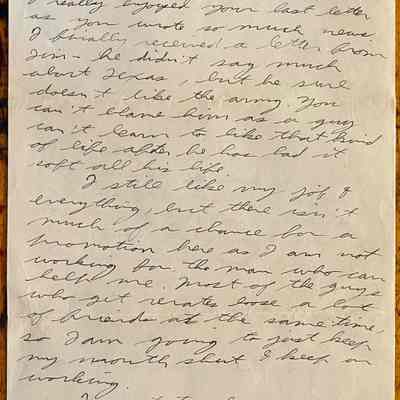 I really enjoyed your last letter
as you wrote so much news.
I finally received a letter from
Jim - he didn't say much
about Texas, but he sure
doesn't like the army. You
can't blame him as a guy
can't learn to like that kind
of life after he has had it
soft all his life.
I still like my job &
everything, but there isn't
much of a chance for a
promotion here as I am not
working for the man who can
help me. Most of the guys
who get rerates loose a lot
of friends at the same time,
so I am going to just keep
my mouth shut & keep on
working.